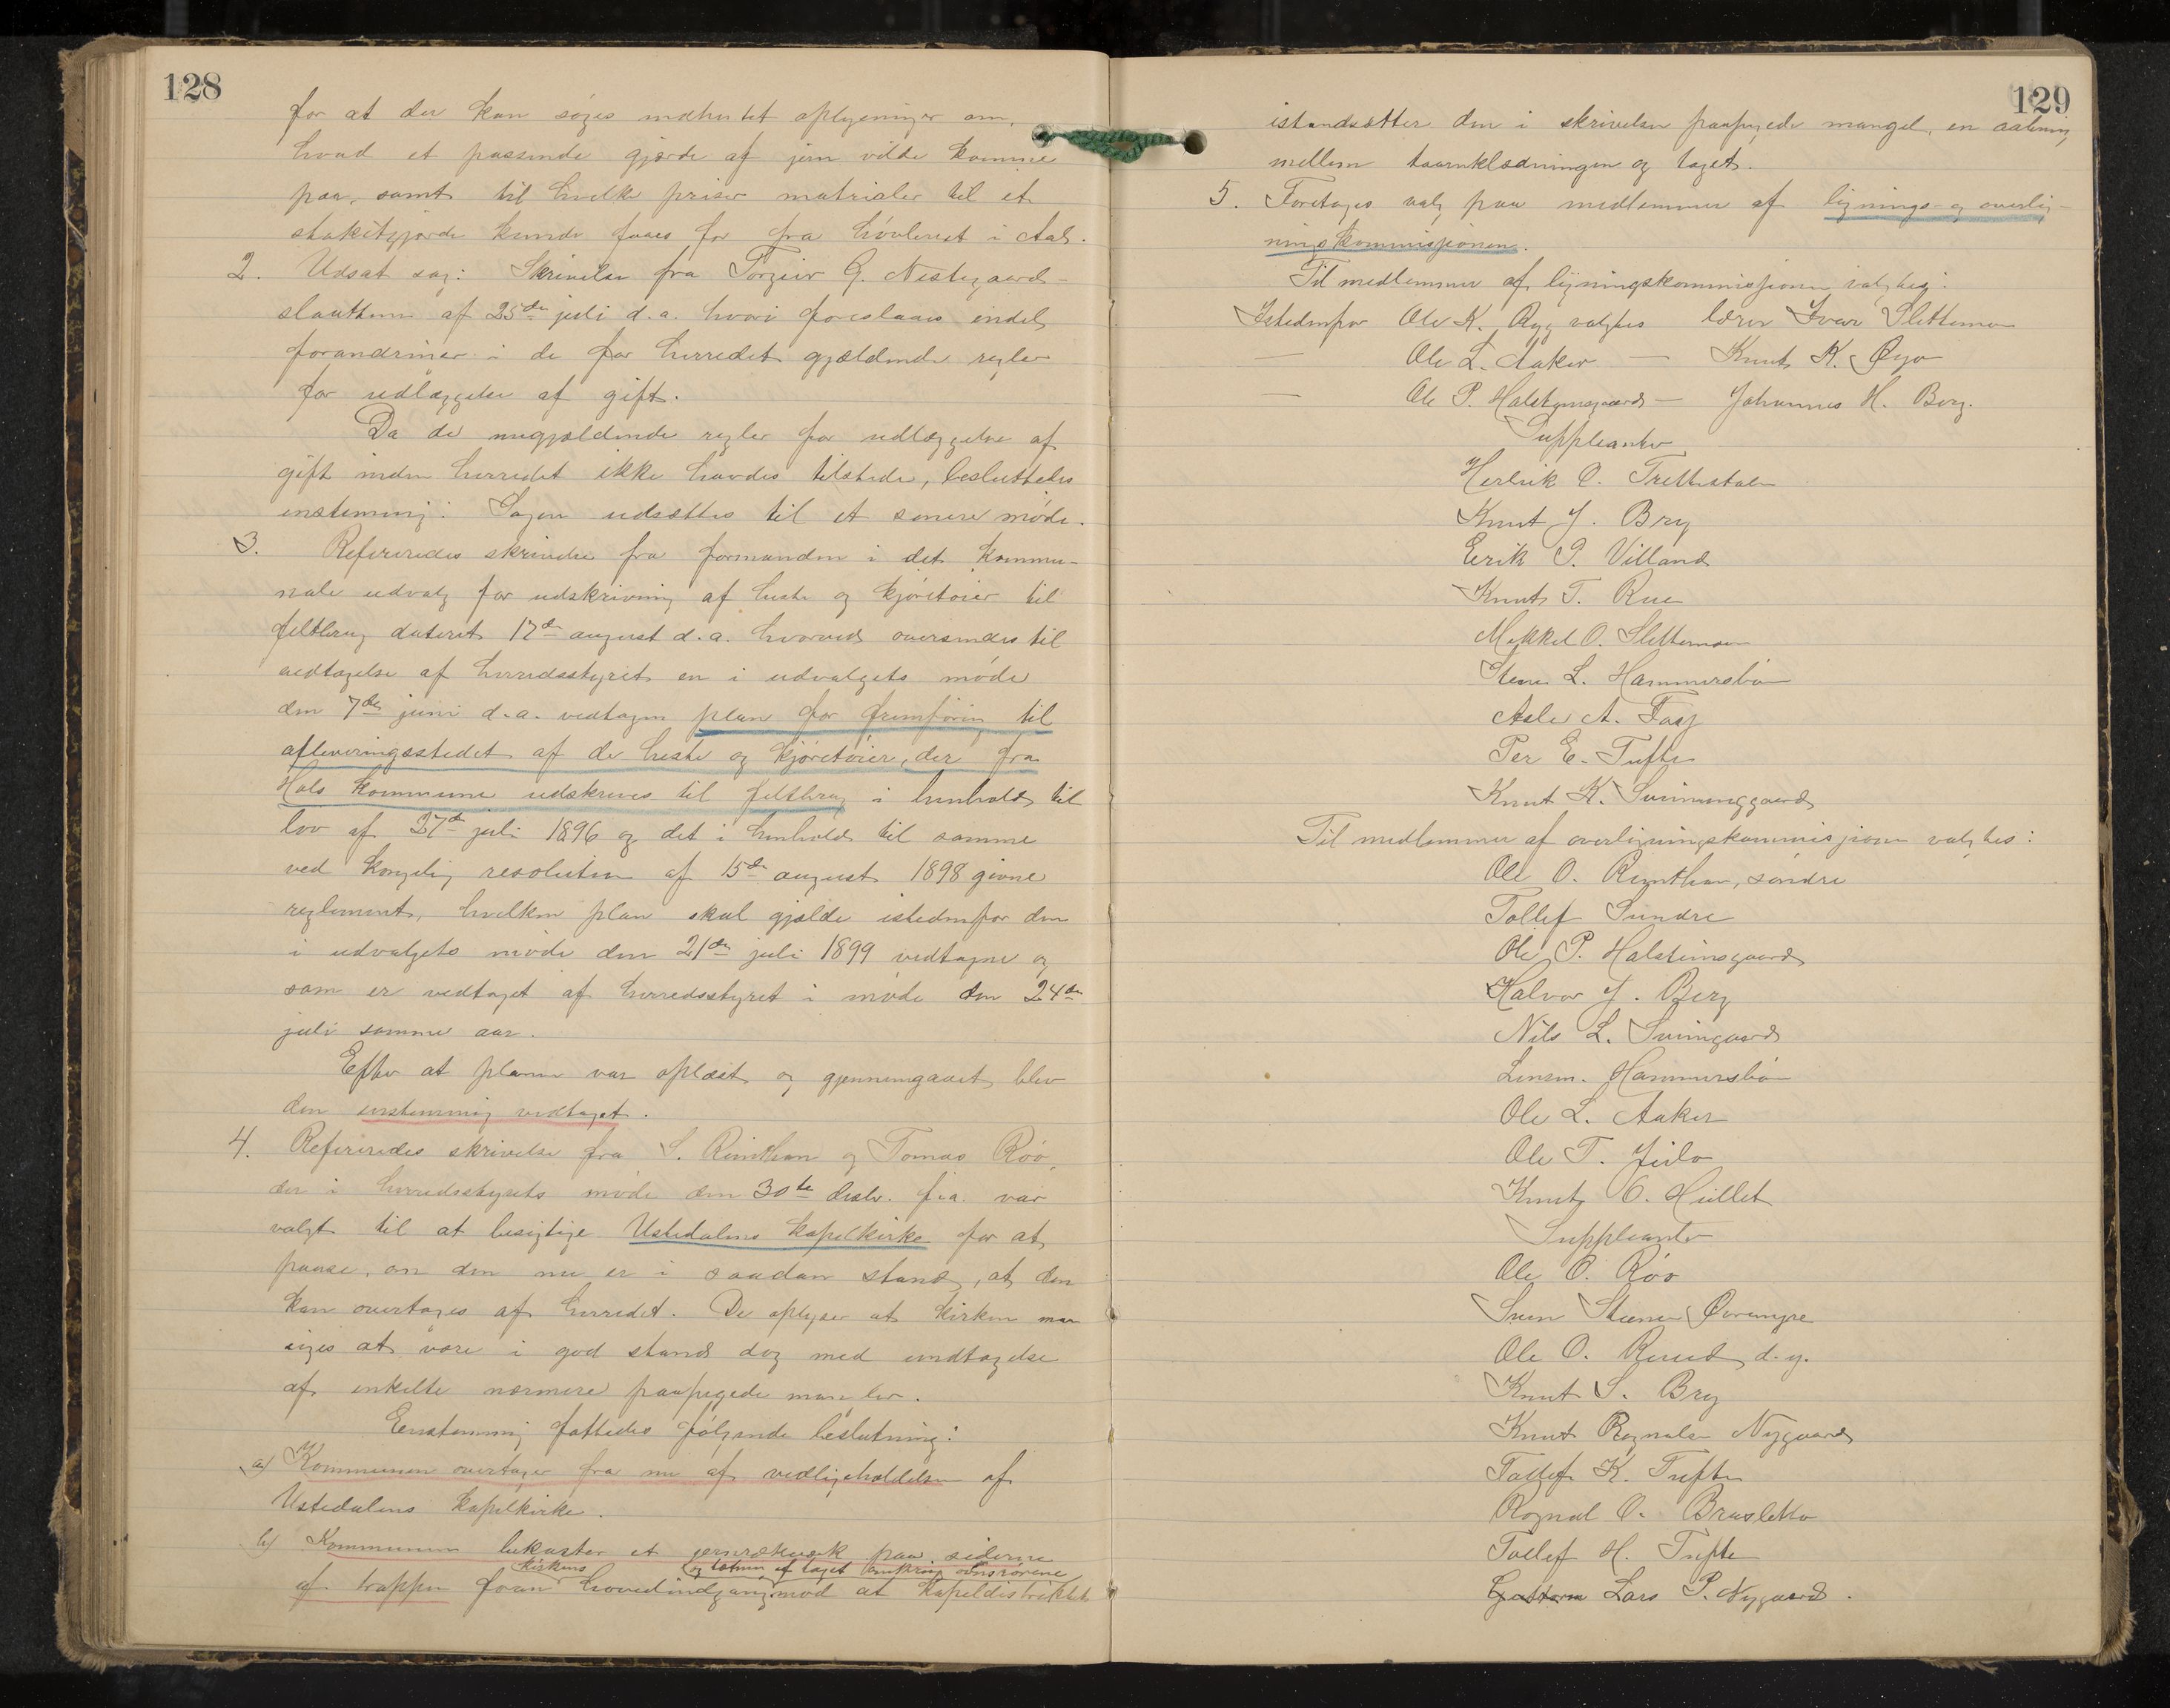 128
for at der kan søges indhentet oplysninger om,
hvad et passende gjærde af jern vilde komme
paa, samt til hvilke priser materialer til et
stakitgjærde kunde faaes for fra høvleriet i Aal.
2. Udsat sag: Skrivelse fra Torgeir G. Nestegaard-
slaatten af 25de juli d.a. hvori foreslaaes endel
forandringer i de for herredet gjældende regler
for udlæggelse af gift.
Da de nugjældende regler for udlæggelse af
gift inden herredet ikke havdes tilstede, besluttedes
enstemmig: Sagen udsættes til et senere møde.
3. Refereredes skrivelse fra formanden i det kommu-
nale udvalg for udskrivning af heste og kjøretøier til
feltbrug dateret 12te august d.a. hvorved oversendes til
vedtagelse af herredsstyret en i udvalgets møde
den 7de juni d.a. vedtagen plan for fremføring til
afleveringsstedet af de heste og kjøretøier, der fra
Hols kommune udskrives til feltbrug i henhold til
lov af 27de juli 1896 og det i henhold til samme
ved kongelig resolution af 15de august 1898 givne
reglement, hvilken plan skal gjælde istedenfor den
i udvalgets møde den 21de juli 1899 vedtagne og
som er vedtaget af herredsstyret i møde den 24de
juli samme aar.
Efter at planen var oplæst og gjennemgaaet, blev
den enstemmig vedtaget.
4. Refereredes skrivelse fra S. Reinthon og Tomas Røo,
der i herredsstyrets møde den 30te decbr. f.a. var
valgt til at besigtige Ustedalens kapelkirke for at
paase, om den nu er i saadan stand, at den
kan overtages af herredet. De oplyser at kirken maa
siges at være i god stand dog med undtagelse
af enkelte nærmere paapegede mangler.
Eenstemmig fattedes følgende beslutning:
a) Kommunen overtager fra nu af vedligeholdelsen af
Ustedalens kapelkirke.
b) Kommunen bekoster et jernrækverk paa siderne
kirkens og tætning af taget omkring ovnsrørene
af trappen foran hovedindgang mod at kapeldistriktet
129
istandsætter den i skrivelsen paapegede mangel, en aabning
mellem taarnklædningen og taget.
5. Foretages valg paa medlemmer af lignings- og overlig-
ningskommissionen.
Til medlemmer af ligningskommissionen valgtes:
Istedenfor Ole K. Ryg valgtes lærer Ivar Slettemoen
— Ole L. Aaker — Knut K. Øyo
— Ole P. Halstensgaard — Johannes H. Berg.
Suppleanter
Herbrik O. Trettestølen
Knut J. Bry
Eerik P. Villand
Knut T. Rue
Mekkel O. Slettemoen
Steen L. Hammersbøen
Asle A. Faaj
Per E. Tufte
Knut K. Sveinunggaard
Til medlemmer af overligningskommissionen valgtes:
Ole O. Reynthon, søndre
Tollef Sundre
Ole P. Halsteinsgaard
Halvor J. Berg
Nils L. Sveingaard
Lensm. Hammersbøen
Ole L. Aaker
Ole T. Jeilo
Knut O. Hullet
Suppleanter
Ole O. Røo
Sven Steenersen Øvrengre
Ole O. Ruud, d.y.
Knut S. Bry
Knut Ragnalsen Nygaard
Tollef K. Tufte
Rognal O. Brusletto
Tollef H. Tufte
Guttorm Lars P. Nygaard.